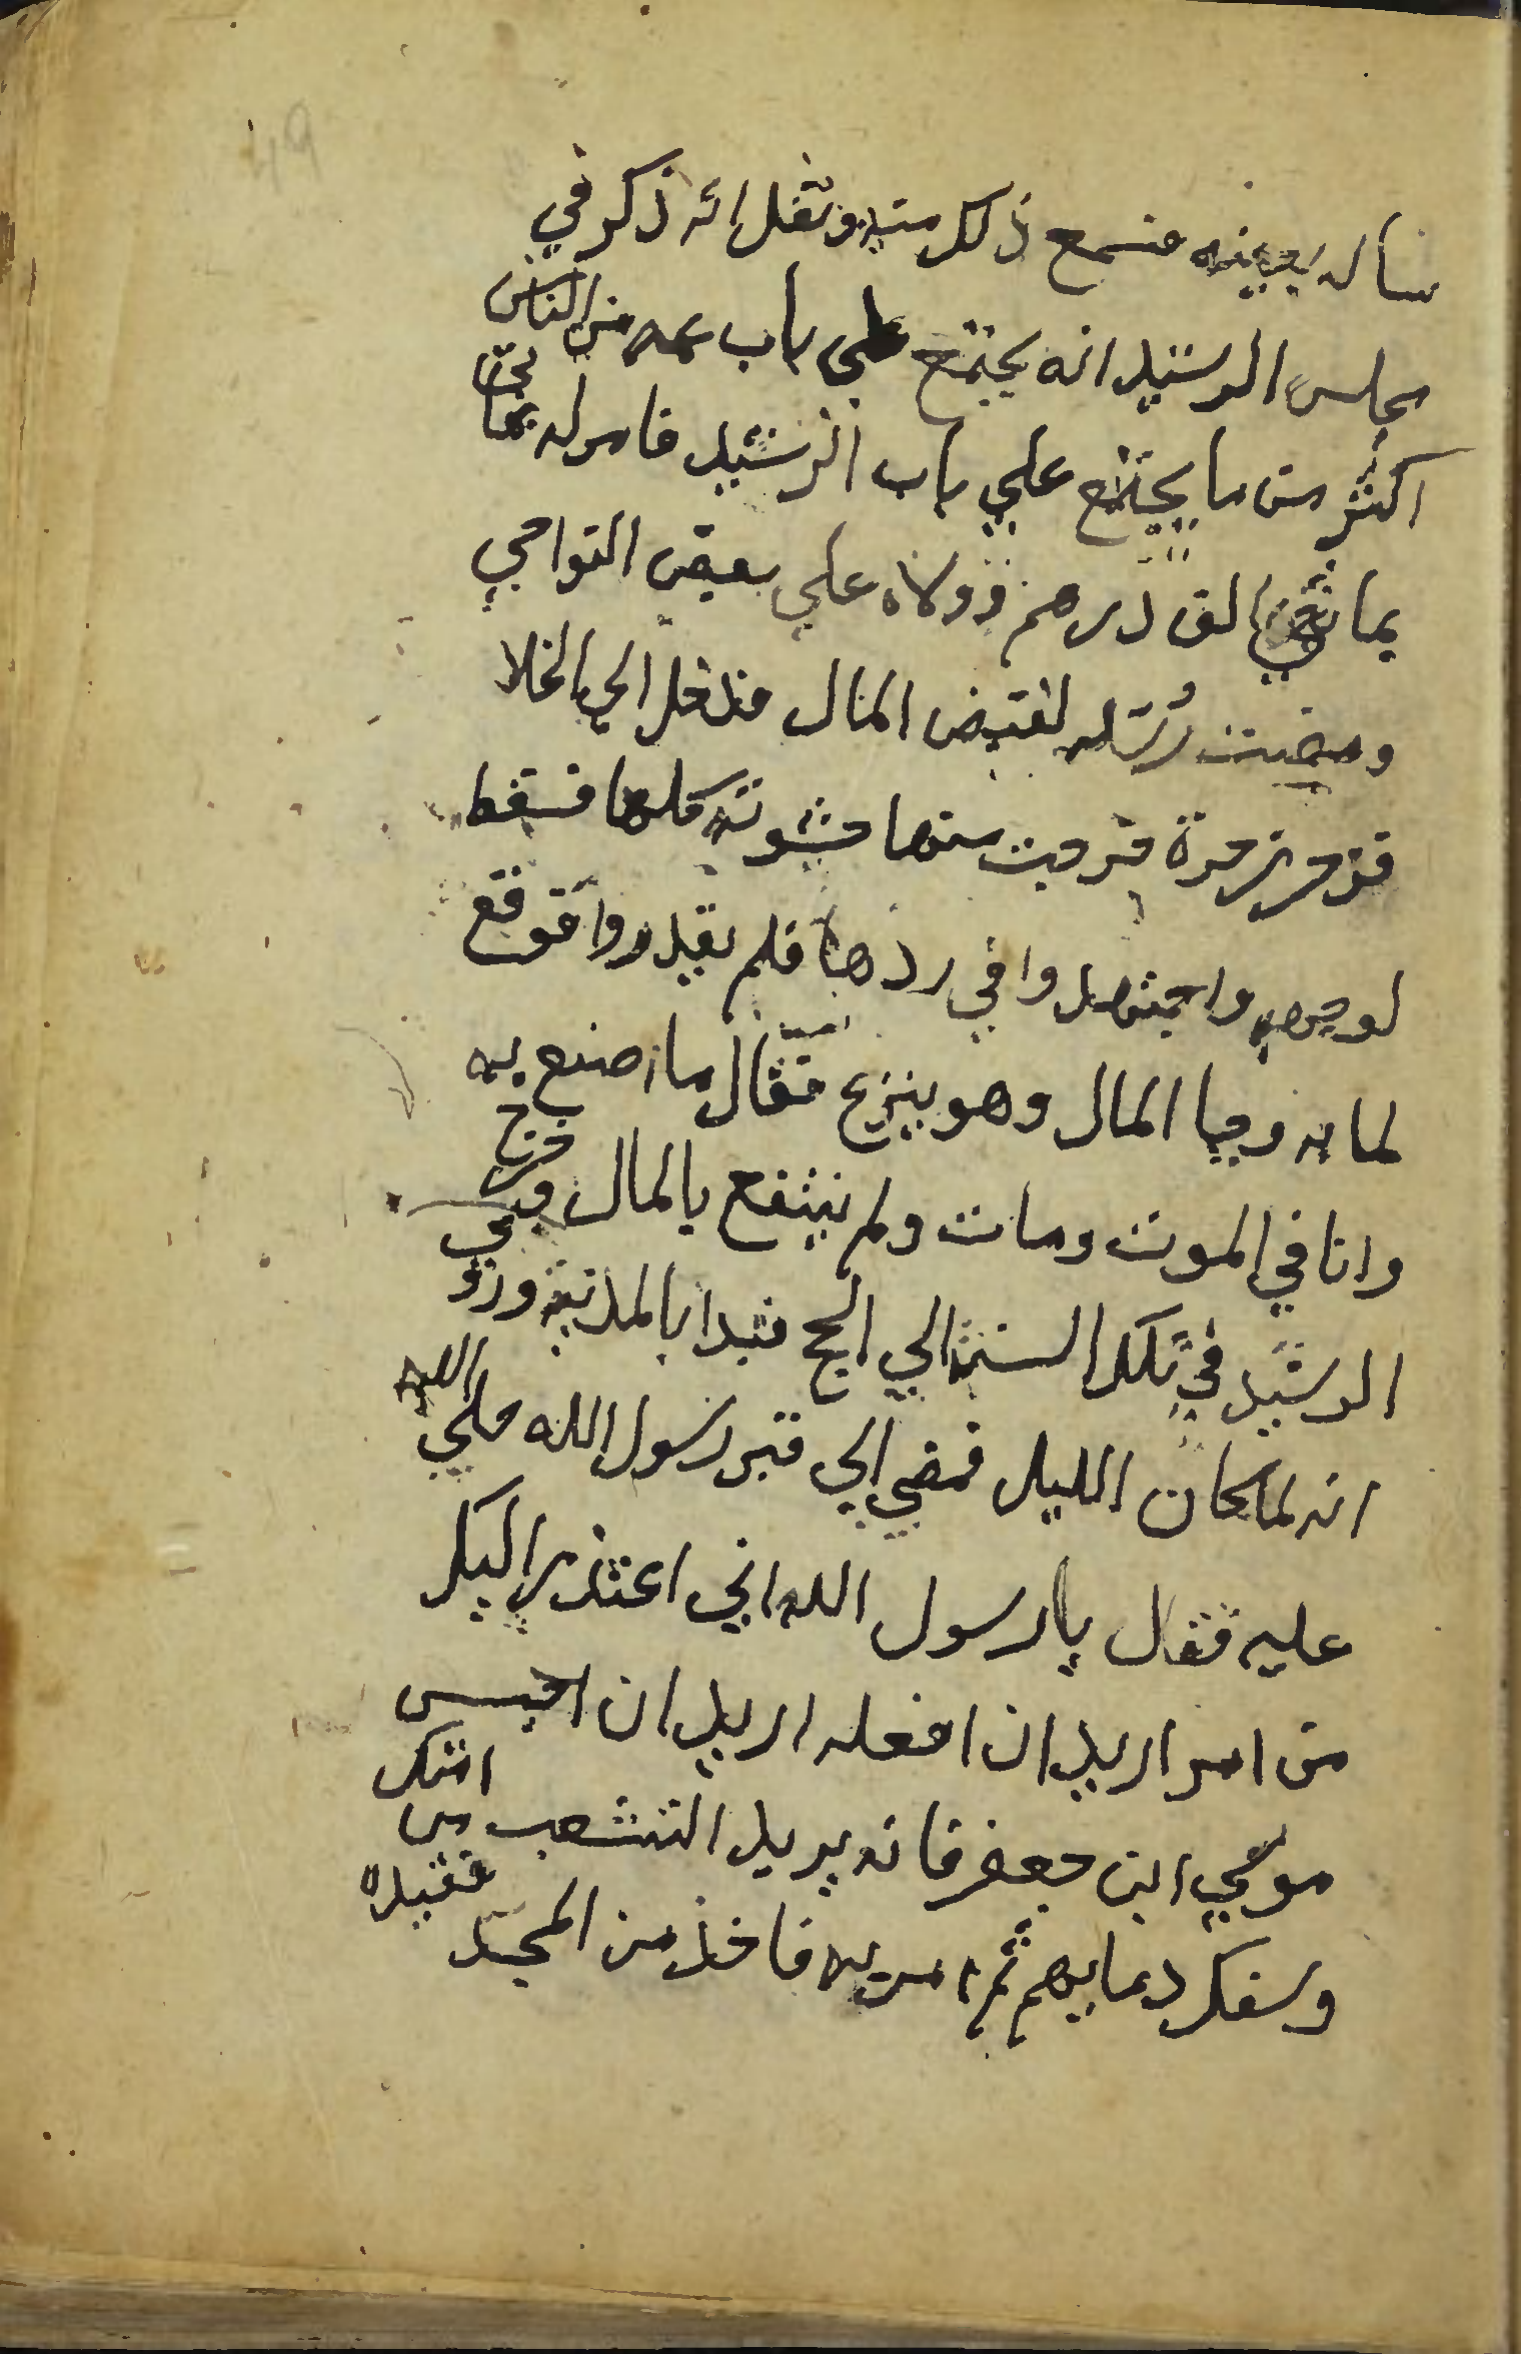 ساله بعينه فسمع ذلك منه ونقل انه ذكر في
مجلس الرشيد انه يجتمع علي باب عمه من الناس
اكثر من ما يجتمع علي باب الرشيد فامر له
بمائتي الف درهم وولاه علي بعض النواحي
ومضت رسله لقبض المال فدخل الي الخلا
فزحر زحرة خرجت منها حشوته كلها فسقط
لوجهه واجتهدوا في ردها فلم يقدروا فوقع
لما به وجا المال وهو ينزع فقال ما اصنع به
وانا في الموت ومات ولم ينتفع بالمال وخرج
الرشيد في تلك السنة الي الحج فبدا بالمدينة وروي
انه لما كان الليل فمضي الي قبر رسول الله صلي الله
عليه فقال يا رسول الله اني اعتذر اليك
من امر اريد ان افعله اريد ان احبس
موسي ابن جعفر فانه يريد التشعب بين امتك
وسفك دمايهم ثم امر به فاخذ من المسجد فقيده